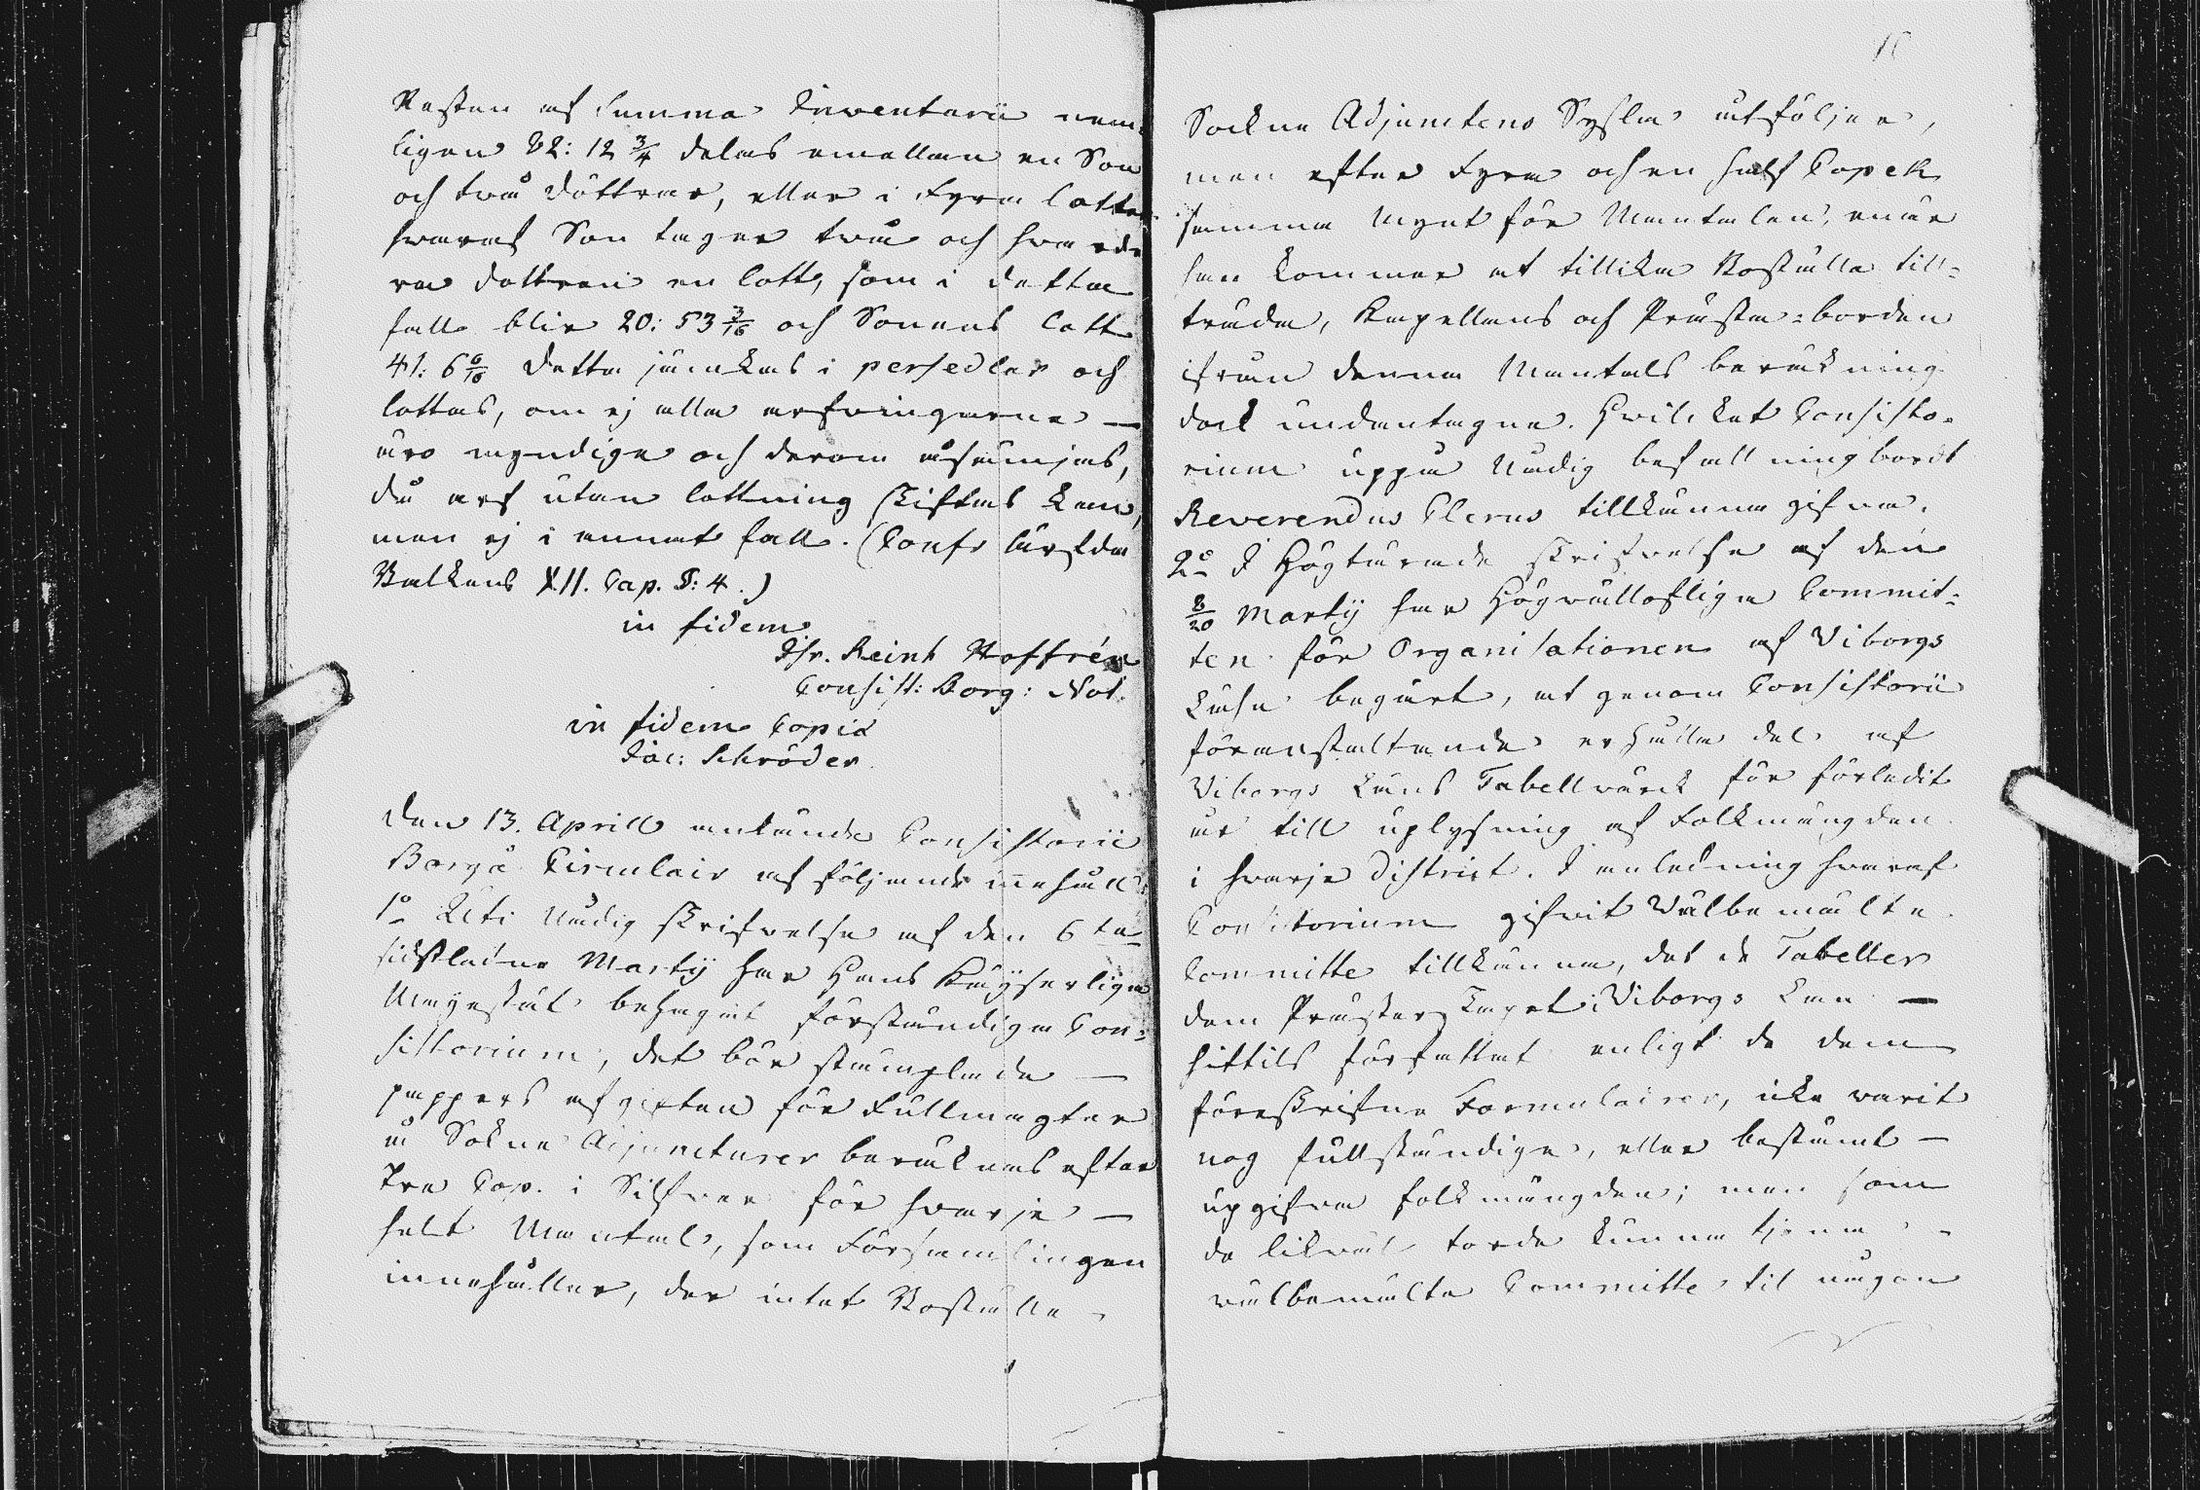 Resten af Summa Inventarii nem-
ligen 82: 12 3/4 delas emellan en Son
och två döttrar, eller i Fyra lotter
hvaraf Son tager två och hvarde-
ra dottren en lott, som i detta
fall blir 20: 53 3/16 och Sonens lott
41: 6 6/16 detta jämkas i persedlar och
lottas, om ej alla arfvingarne —
äro myndige och derom åsämjas,
då arf utan lottning skiftas kan,
men ej i annat fall. (Confr Ärfda
Balkens XII. Cap. §: 4.)
in fidem
Joh. Reinh Hoffrén
Consist: Borg: Not.
in fidem Copiæ
Jac: Schröder.
Den 13. Aprill ankände Consistorii
Borgå Circulair af följande inehåll
1o Uti Nådig skrifvelse af den 6te
sidstledne Martÿ har Hans Kejserliga
Mayestät behagat förständiga Con-
sistorium, det bör stämplade —
pappers afgiften för Fullmagter
å Sokne Adjuncturer beräknas efter
Tre Cop. i Silfver för hvarje —
helt Mantal, som Församlingen
innehåller, der intet Boställe
16
Sockne Adjunctens Sysla åtföljer,
men efter Fyra och en half Copek
samma Mynt för Mantalen, enär
han kommer at tillika Boställe till-
träda, Kapellans och Prästa-borden
ifrån denna Mantals beräkning
dock undantagne. Hvilcket Consisto-
rium uppå Nådig befallning bordt
Reverendus Clerus tillkänna gifva.
2o I Högtärade skrifvelse af den
8/20 Martÿ har Högvälloflige Commit-
ten för Organisationen af Viborgs
Lähn begärt, at genom Consistorii
föranstaltande erhålla del af
Viborgs Läns Tabellvärck för förledit
år till uplysning af Folkmängden
i hvarje District. I anledning hvaraf
Consistorium gifvit Välbemälte
Committe tillkänna, det de Tabeller
dem Presterskapet i Viborgs Län —
hittils författat enligt de dem
föreskrifne Formulairer, icke varit
nog fullständige, eller bestämt —
upgifva folkmängden; men som
de likväl torde kunna tjena
välbemälte Committe til någon